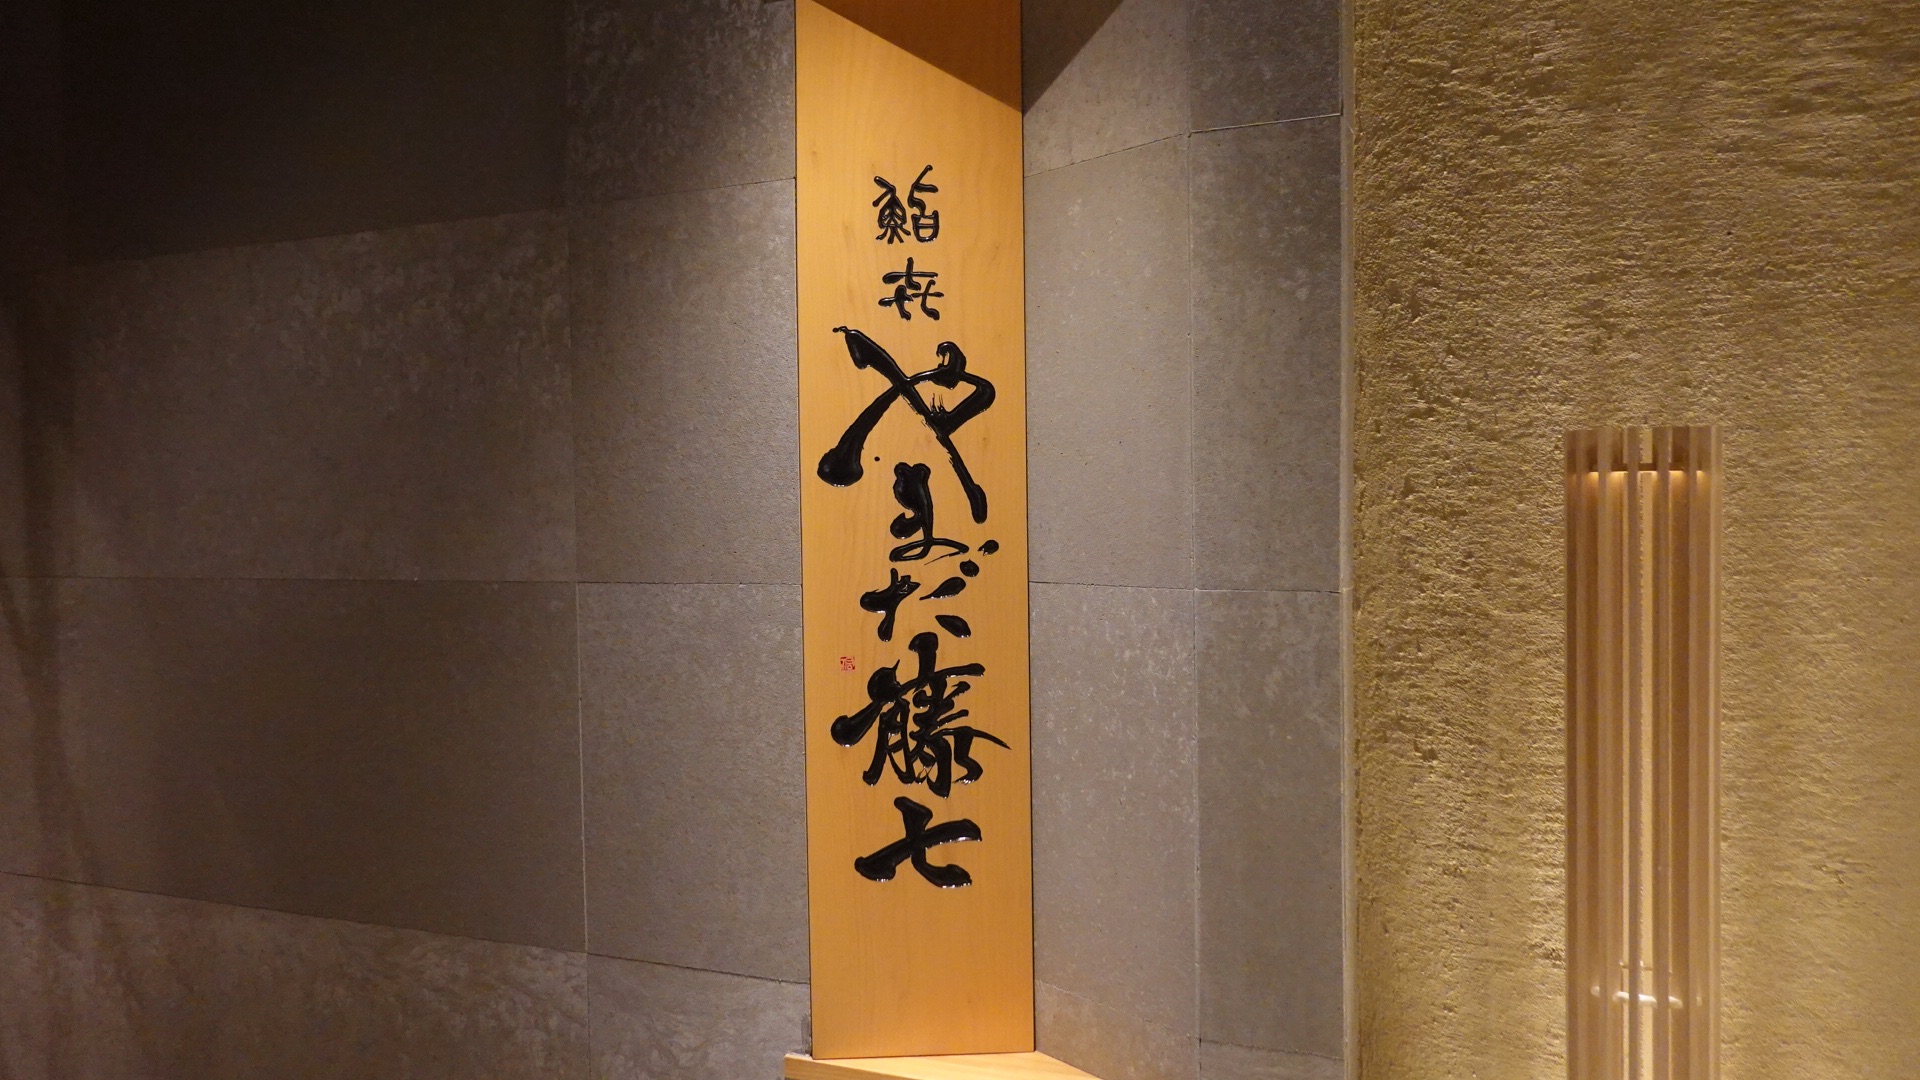 鮨 㐂
やまだ 藤七